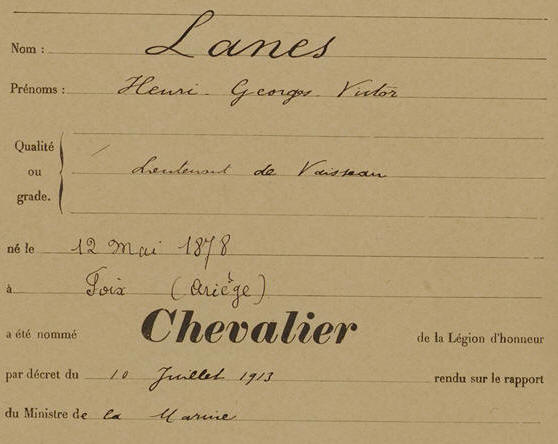 Nom : Lanes
Prénoms : Henri Georges Victor
Qualité
ou Lieutenant de Vaisseau
grade.
né le 12 Mai 1878
à Foix (Ariège)
a été nommé Chevalier de la Légion d'honneur
par décret du 10 Juillet 1913 rendu sur le rapport
du Ministre de la Marine